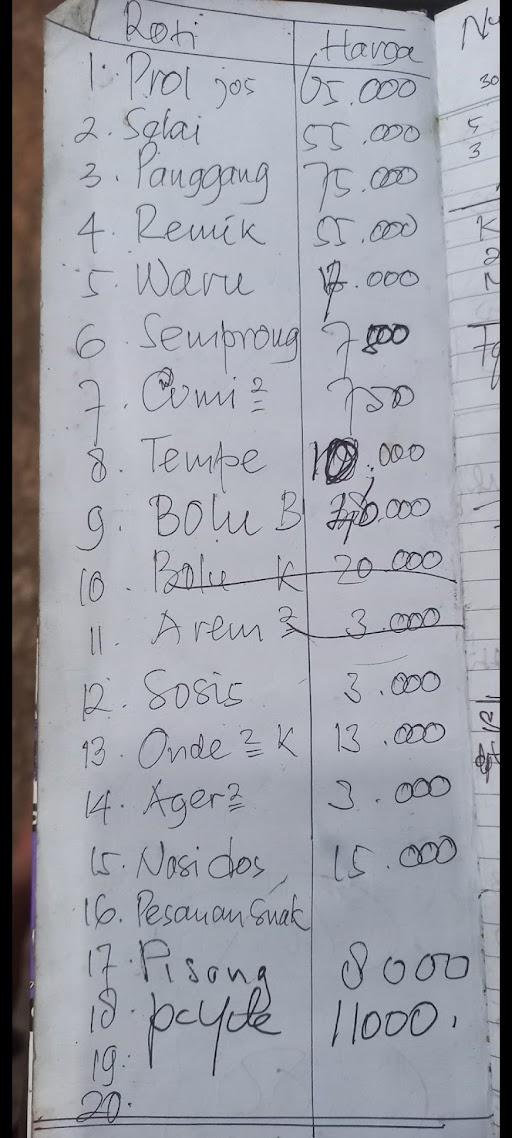 Roti Harga
1. Prol jos 65.000
2. Selai 55.000
3. Panggang 75.000
4. Remik 55.000
5. Waru
6. Semprong 7500
7. Cumi 2 750
8. Tempe 10.000
9. Bolu B
10. Bolu K 20.000
11. Arem 2 3.000
12. Sosis 3.000
13. Onde 2 K 13.000
14. Ager 2 3.000
15. Nasi dos, 15.000
16. Pesanan Snak
17. Pisang 8000
18. 11000.
19.
20.